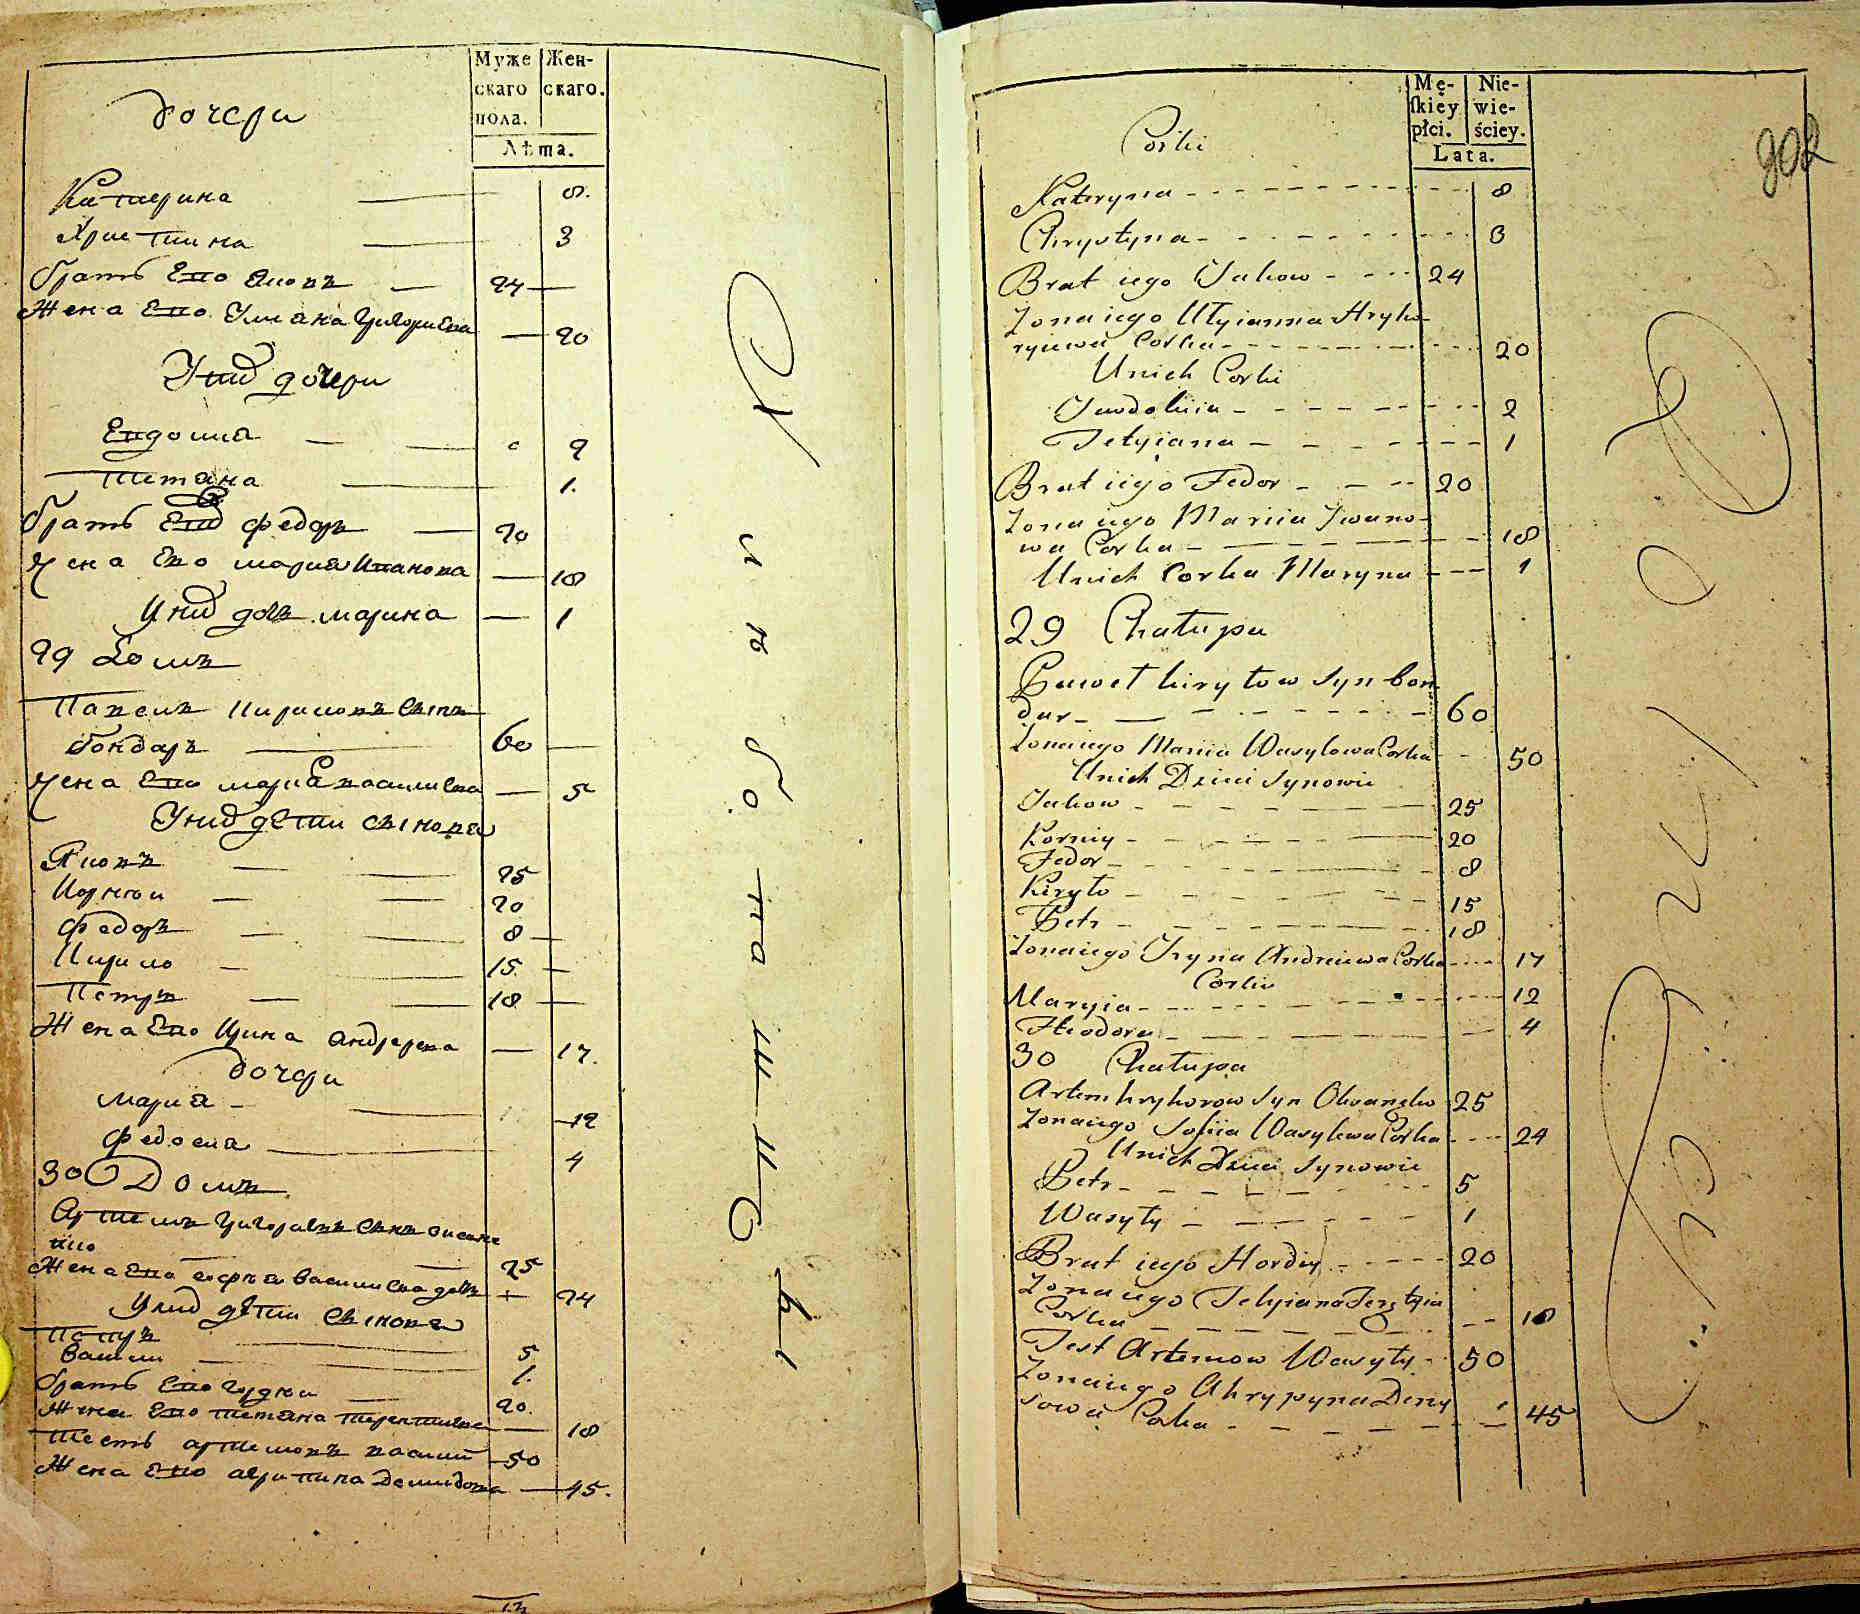 Муже
скаго
пола.
Жен-
скаго.
Лѣта.
дочери
Катерина 8.
Христина 3
братъ Его Яковъ 24
Жена Его Уляна Григориева 20
Унихъ дочери
Евдокия 2
Тетяна 1.
братъ Его Федоръ 20
Жена Его Мария Иванова 18
Унихъ дочь Марина 1
29 Домъ
Павелъ Кириловъ Сынъ
бондаръ 60
Жена Его Мария Василиева 5
Унихъ дети Сынове
Яковъ 25
Корнѣи 20
Федоръ 8
Кирило 15
Петръ 18
Жена Его Ирина Андреева 17.
дочери
Мария 12
Федосия 4
30 Домъ
Артемъ Григориевъ Сынъ
25
Жена Его Софъя Василиева дочь 24
Унихъ дети Сынове
Петръ 5
Василии 1.
братъ Его Гордѣи 20.
Жена Его Тетяна 18
Тесть Артемовъ Василий 50
Жена Его Агрипина Демидова 45.
Mę-
skiey
płci.
Nie-
wie-
ściey.
Lata.
202
Corki
Kateryna 8
Chrystyna 3
Brat iego Jakow 24
Zona iego Ulyianna Hryho-
ryiewa Corka 20
Unich Corki
Jewdokiia 2
Tetyiana 1
Brat iego Fedor 20
Zona iego Mariia Iwano-
wa Corka 18
Unich Corka Maryna 1
29 Chałupa
Paweł Kiryłow Syn bon-
dar 60
Zona iego Mariia Wasylowa Corka 50
Unich Dzieci Synowie
Jakow 25
Korniy 20
Fedor 8
Kiryło 15
Petr 18
Zona iego Iryna Andreiewa Corka 17
Corki
Maryia 12
Fteodora 4
30 Chałupa
Artem hryhorow Syn 25
Zona iego Sofiia Wasylewa Corka 24
Unich Dzieci Synowie
Petr 5
Wasyly 1
Brat iego Hordiy 20
Zona iego Tetyiana
Corka 18
Test Artemow Wasyly 50
Zona iego Ahrypyna Deny
sowa Corka 45